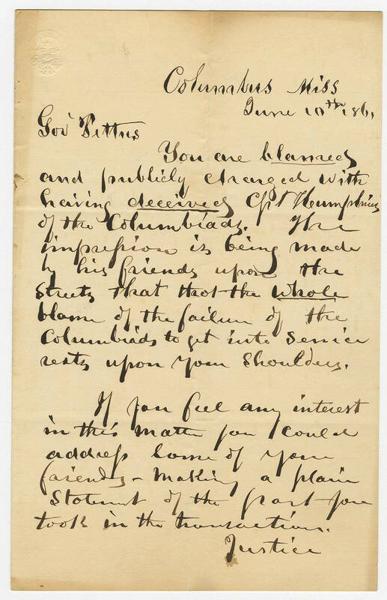 Columbus Miss
June 10th 1861
Gov Pettus
You are blamed
and publicly charged with
having deceived Cpt Humphries
of the Columbiads. The
impression is being made
by his friends upon the
streets that that the whole
blame of the failure of the
Columbiads to get into service
rests upon your shoulders.
If you feel any interest
in this matter you could
address some of your
friends - making a plain
statement of the part you
took in the transaction.
Justice